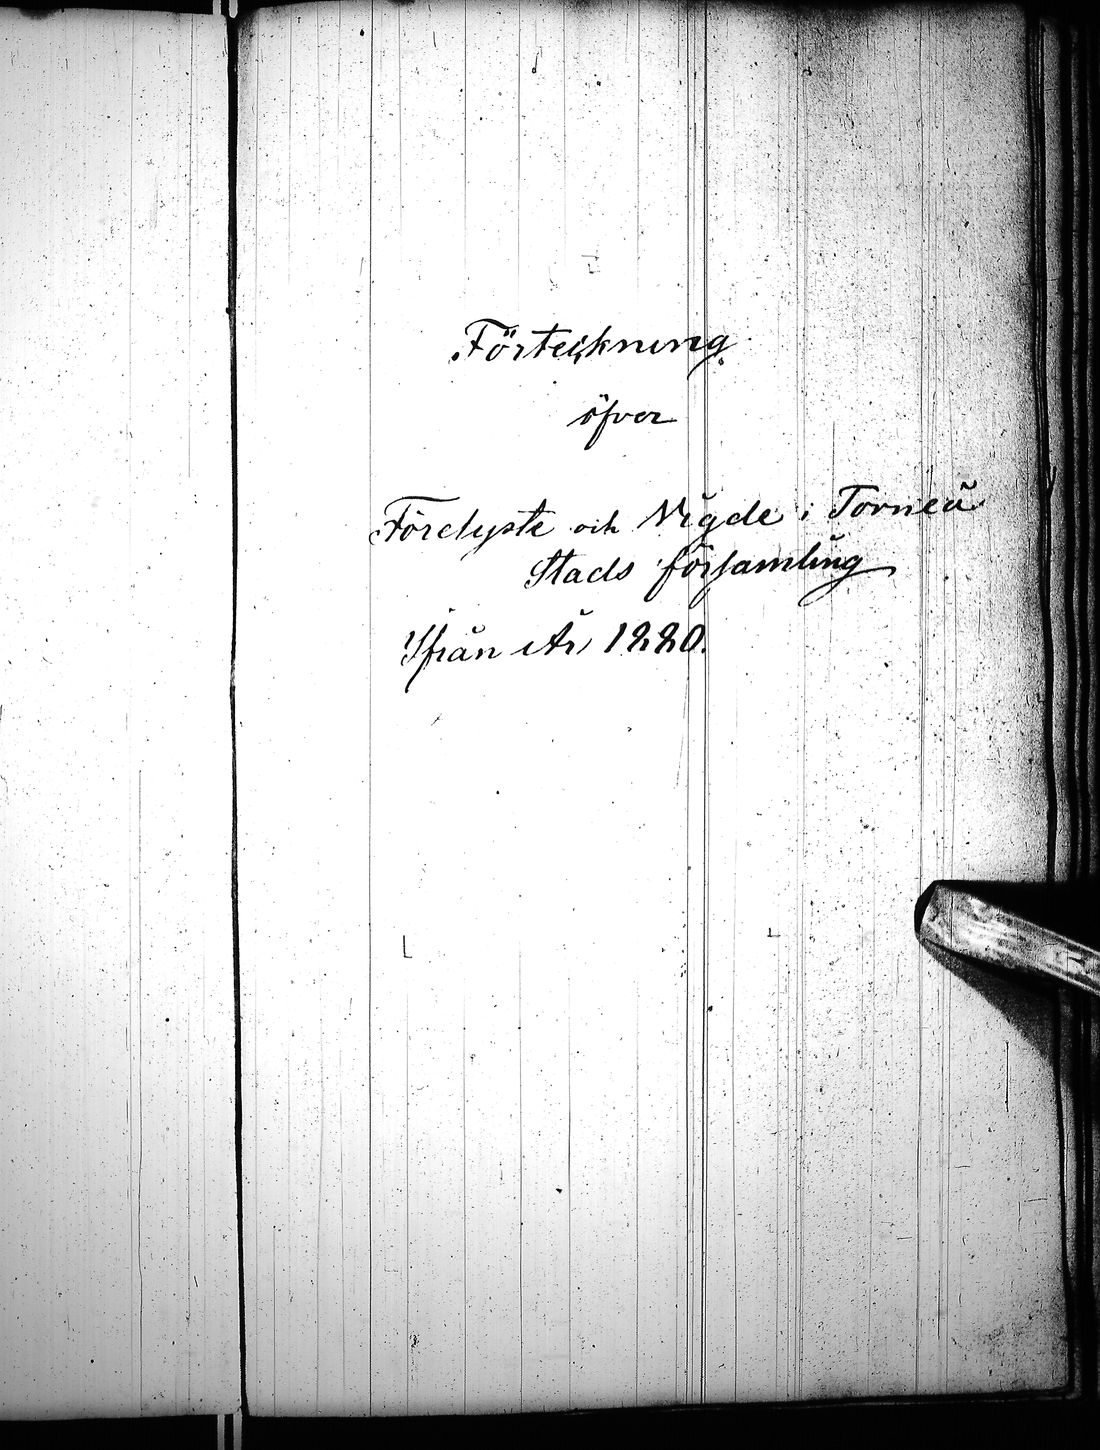 Förteckning
öfver
Förelyste och Vigde i Torneå
Stads församling
Ifrån År 1880.